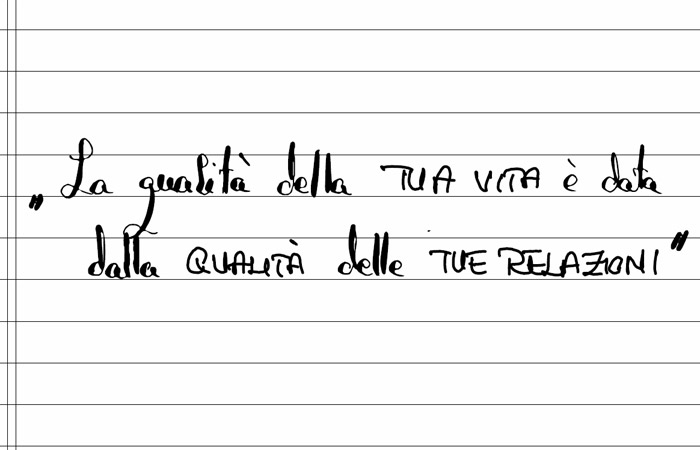 „La qualità della TUA VITA è data
dalla QUALITÀ delle TUE RELAZIONI"